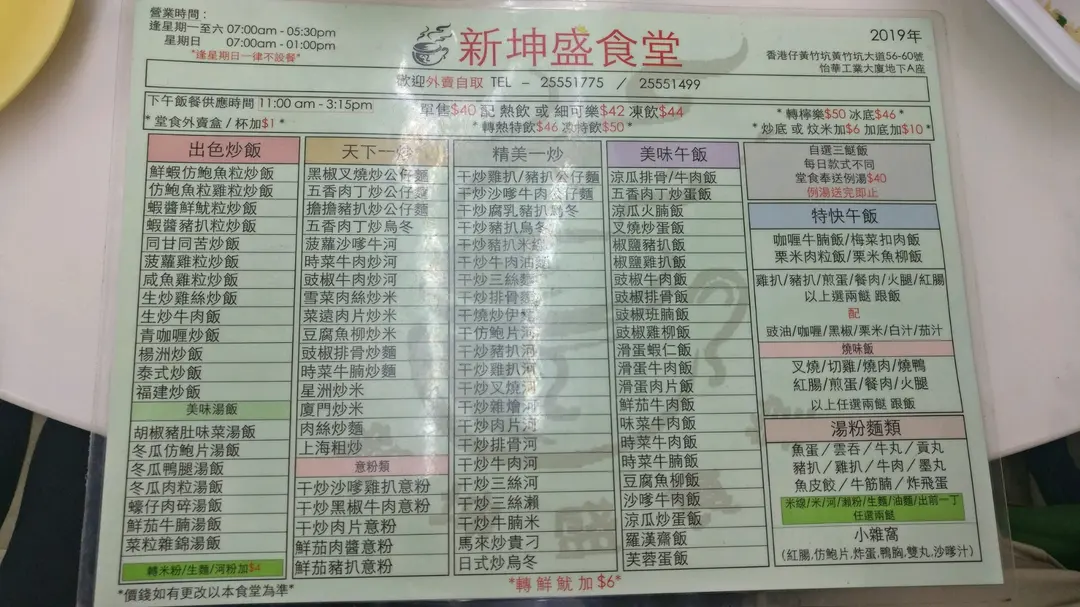 營業時間：
逢星期一至六 07:00am - 05:30pm
星期日 07:00am - 01:00pm
*逢星期日一律不設餐*
新坤盛食堂
2019年
香港仔黃竹坑黃竹坑大道56-60號
怡華工業大廈地下A座
歡迎外賣自取 TEL - 25551775 / 25551499
下午飯餐供應時間 11:00 am - 3:15pm
* 堂食外賣盒 / 杯加$1 *
單售$40 記 熱飲 或 細可樂$42 凍飲$44
* 轉熱特飲$46 凍特飲$50 *
* 轉檸樂$50 冰底$46 *
* 炒底 或 炆米加$6 加底加$10 *
出色炒飯
鮮蝦仿鮑魚粒炒飯
仿鮑魚粒雞粒炒飯
蝦醬鮮魷粒炒飯
蝦醬豬扒粒炒飯
同甘同苦炒飯
菠蘿雞粒炒飯
咸魚雞粒炒飯
生炒雞絲炒飯
生炒牛肉飯
青咖喱炒飯
楊洲炒飯
泰式炒飯
福建炒飯
美味湯飯
胡椒豬肚味菜湯飯
冬瓜仿鮑片湯飯
冬瓜鴨腿湯飯
冬瓜肉粒湯飯
蠔仔肉碎湯飯
鮮茄牛腩湯飯
菜粒雜錦湯飯
轉米粉/生麵/河粉加$4
*價錢如有更改以本食堂為準*
天下一炒
黑椒叉燒炒公仔麵
五香肉丁炒公仔麵
擔擔豬扒炒公仔麵
五香肉丁炒烏冬
菠蘿沙嗲牛河
時菜牛肉炒河
豉椒牛肉炒河
雪菜肉絲炒米
菜遠肉片炒米
豆腐魚柳炒米
豉椒排骨炒麵
時菜牛腩炒麵
星洲炒米
廈門炒米
肉絲炒麵
上海粗炒
意粉類
干炒沙嗲雞扒意粉
干炒黑椒牛肉意粉
干炒肉片意粉
鮮茄肉醬意粉
鮮茄豬扒意粉
精美一炒
干炒雞扒/豬扒公仔麵
干炒沙嗲牛肉公仔麵
干炒腐乳豬扒烏冬
干炒豬扒烏冬
干炒豬扒米線
干炒牛肉油麵
干炒三絲麵
干炒排骨麵
干燒炒伊麵
干仿鮑片河
干炒豬扒河
干炒雞扒河
干炒叉燒河
干炒雜燴河
干炒肉片河
干炒排骨河
干炒牛肉河
干炒三絲河
干炒三絲瀨
干炒牛腩米
馬來炒貴刁
日式炒烏冬
*轉鮮魷加$6*
美味午飯
涼瓜排骨/牛肉飯
五香肉丁炒蛋飯
涼瓜火腩飯
叉燒炒蛋飯
椒鹽豬扒飯
椒鹽雞扒飯
豉椒牛肉飯
豉椒排骨飯
豉椒班腩飯
豉椒雞柳飯
滑蛋蝦仁飯
滑蛋牛肉飯
滑蛋肉片飯
鮮茄牛肉飯
味菜牛肉飯
時菜牛肉飯
時菜牛腩飯
豆腐魚柳飯
沙嗲牛肉飯
涼瓜炒蛋飯
羅漢齋飯
芙蓉蛋飯
自選三餸飯
每日款式不同
堂食奉送例湯$40
例湯送完即止
特快午飯
咖喱牛腩飯/梅菜扣肉飯
粟米肉粒飯/粟米魚柳飯
雞扒/豬扒/煎蛋/餐肉/火腿/紅腸
以上選兩餸 跟飯
配
豉油/咖喱/黑椒/粟米/白汁/茄汁
燒味飯
叉燒/切雞/燒肉/燒鴨
紅腸/煎蛋/餐肉/火腿
以上任選兩餸 跟飯
湯粉麵類
魚蛋/雲吞/牛丸/貢丸
豬扒/雞扒/牛肉/墨丸
魚皮餃/牛筋腩/炸飛蛋
米線/米/河/瀨粉/生麵/油麵/出前一丁
任選兩餸
小雜窩
(紅腸,仿鮑片,炸蛋,鴨胸,雙丸,沙嗲汁)